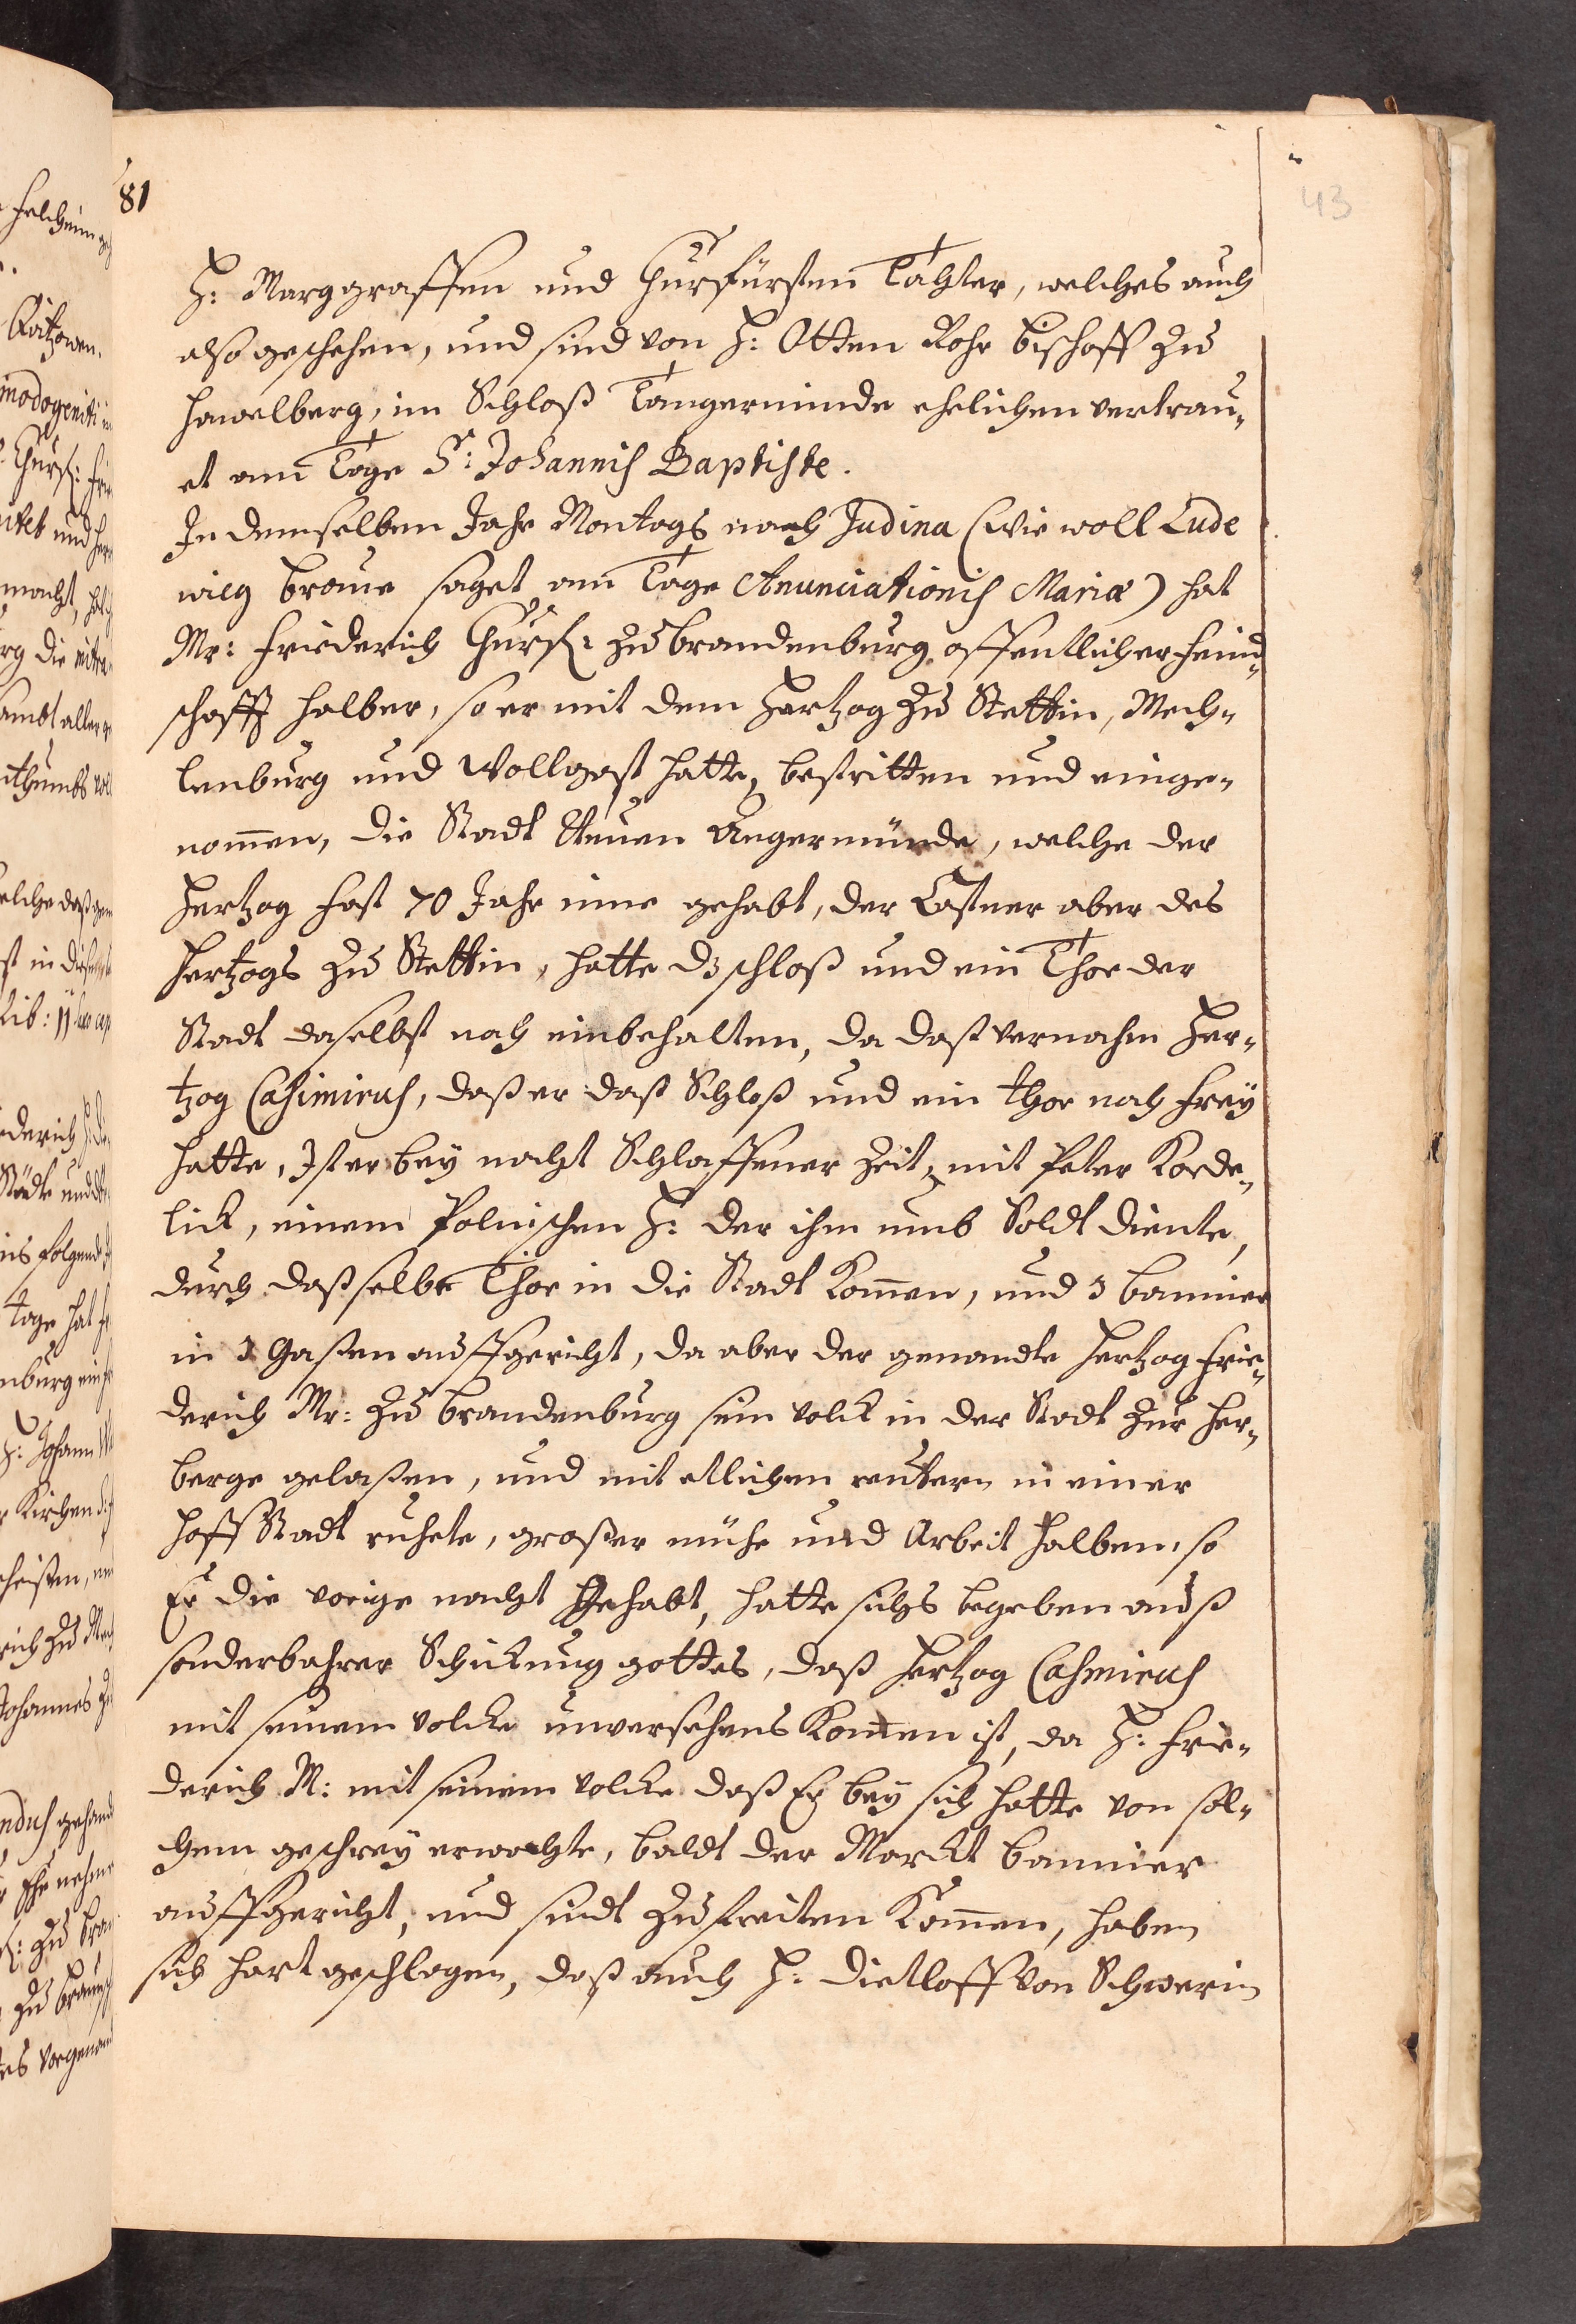 81
43
H: Marggraffen und Churfürsten Tochter, welches auch
also geschehen, und sind von H: Otten Rohr Bischoff zu
Hawelberg, im Schloß Tangerminde ehelichen vertrau-
et am Tage S: Johannis Baptiste.
In demselben Jahr Montags nach Judina (wie woll Lude
wieg Braue saget am Tage Anunciationis Mariæ) hat
Mr: Friederich Churf: zu Brandenburg offentlicher feind-
schafft halber, so er mit dem Hertzog zu Stettin, Mech-
lenburg und Wollgast hatte, bestritten und einge-
nom̄en, die Stadt Neuen Angermünde, welche der
Hertzog fast 70 Jahr inne gehabt, der Castner aber des
Hertzogs zu Stettin, hatte dz schloß und ein Thor der
Stadt daselbst noch einbehalten, da daß vernahm Her-
tzog Casimirus, daß er daß Schloß und ein thor noch frey
hatte, Ist er bey nacht Schlaffener Zeit, mit Peter Korde-
lick, einem Polnischen H: der ihm umb Soldt diente,
durch daßselbe Thor in die Stadt Kom̄en, und 3 bannier
in 3 Gaßen auffgericht, da aber der genandte Hertzog Frie-
derich Mr: zu Brandenburg sein volck in der Stadt zur Her-
berge gelaßen, und mit etlichen reutern in einer
Hoff Stadt ruhete, großer mühe und Arbeit halben, so
Er die vorige nacht gehabt, hatte sichs begeben auß
sonderbahrer Schickung gottes, daß Hertzog Casmirus
mit seinem volcke unversehens Kom̄en ist, da H: Frie-
derich M: mit seinem volcke daß Er bey sich hatte von sol-
chem geschrey erwachte, baldt der Marckt bannier
auffgericht, und sindt zu streiten Kom̄en, haben
sich hart geschlagen, daß auch H: Dietloff von Schwerin